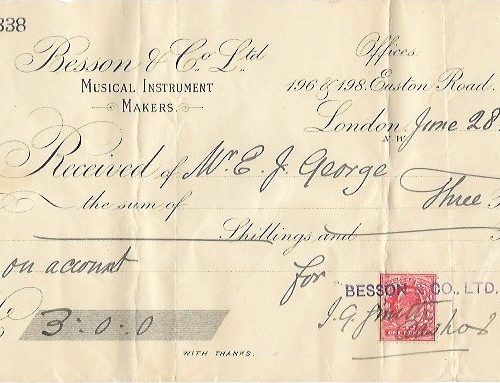 838
Besson & Co. Ltd
Musical Instrument
Makers.
Offices
196 & 198. Euston Road.
London, June 28
N.W.
Received of Mr E. J. George
the sum of Three
Shillings and
on account for
BESSON & CO., LTD.
£ 3:0:0
WITH THANKS.